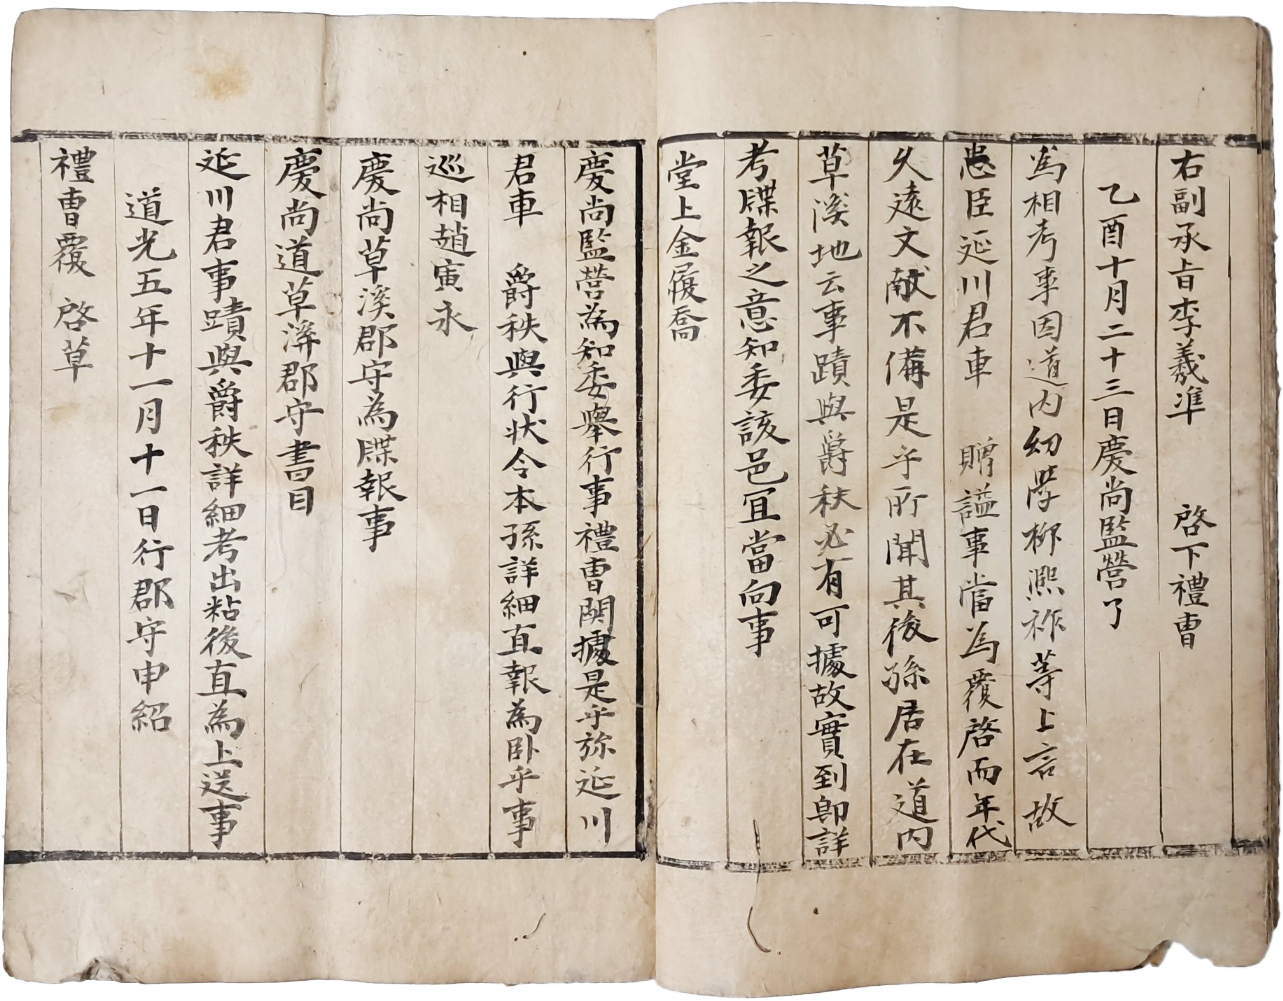 右副承旨李羲準 啓下禮曹
乙酉十月二十三日慶尚監營了
爲相考事因道內幼學柳熈祚等上言故
忠臣延川君車 贈謚事當為覆啓而年代
久遠文献不備是乎所聞其後孫居在道內
草溪地云事蹟與爵秩必有可據故實到卽詳
考牒報之意知委該邑冝當向事
堂上金履喬
慶尚監營為知委舉行事禮曹関據是乎弥延川
君車 爵秩與行状令本孫詳細直報為卧乎事
巡相趙寅永
慶尚草溪郡守為牒報事
慶尚道草溪郡守書目
延川君事蹟與爵秩詳細考出粘後直為上送事
道光五年十一月十一日行郡守申紹
禮曹覆 啓草